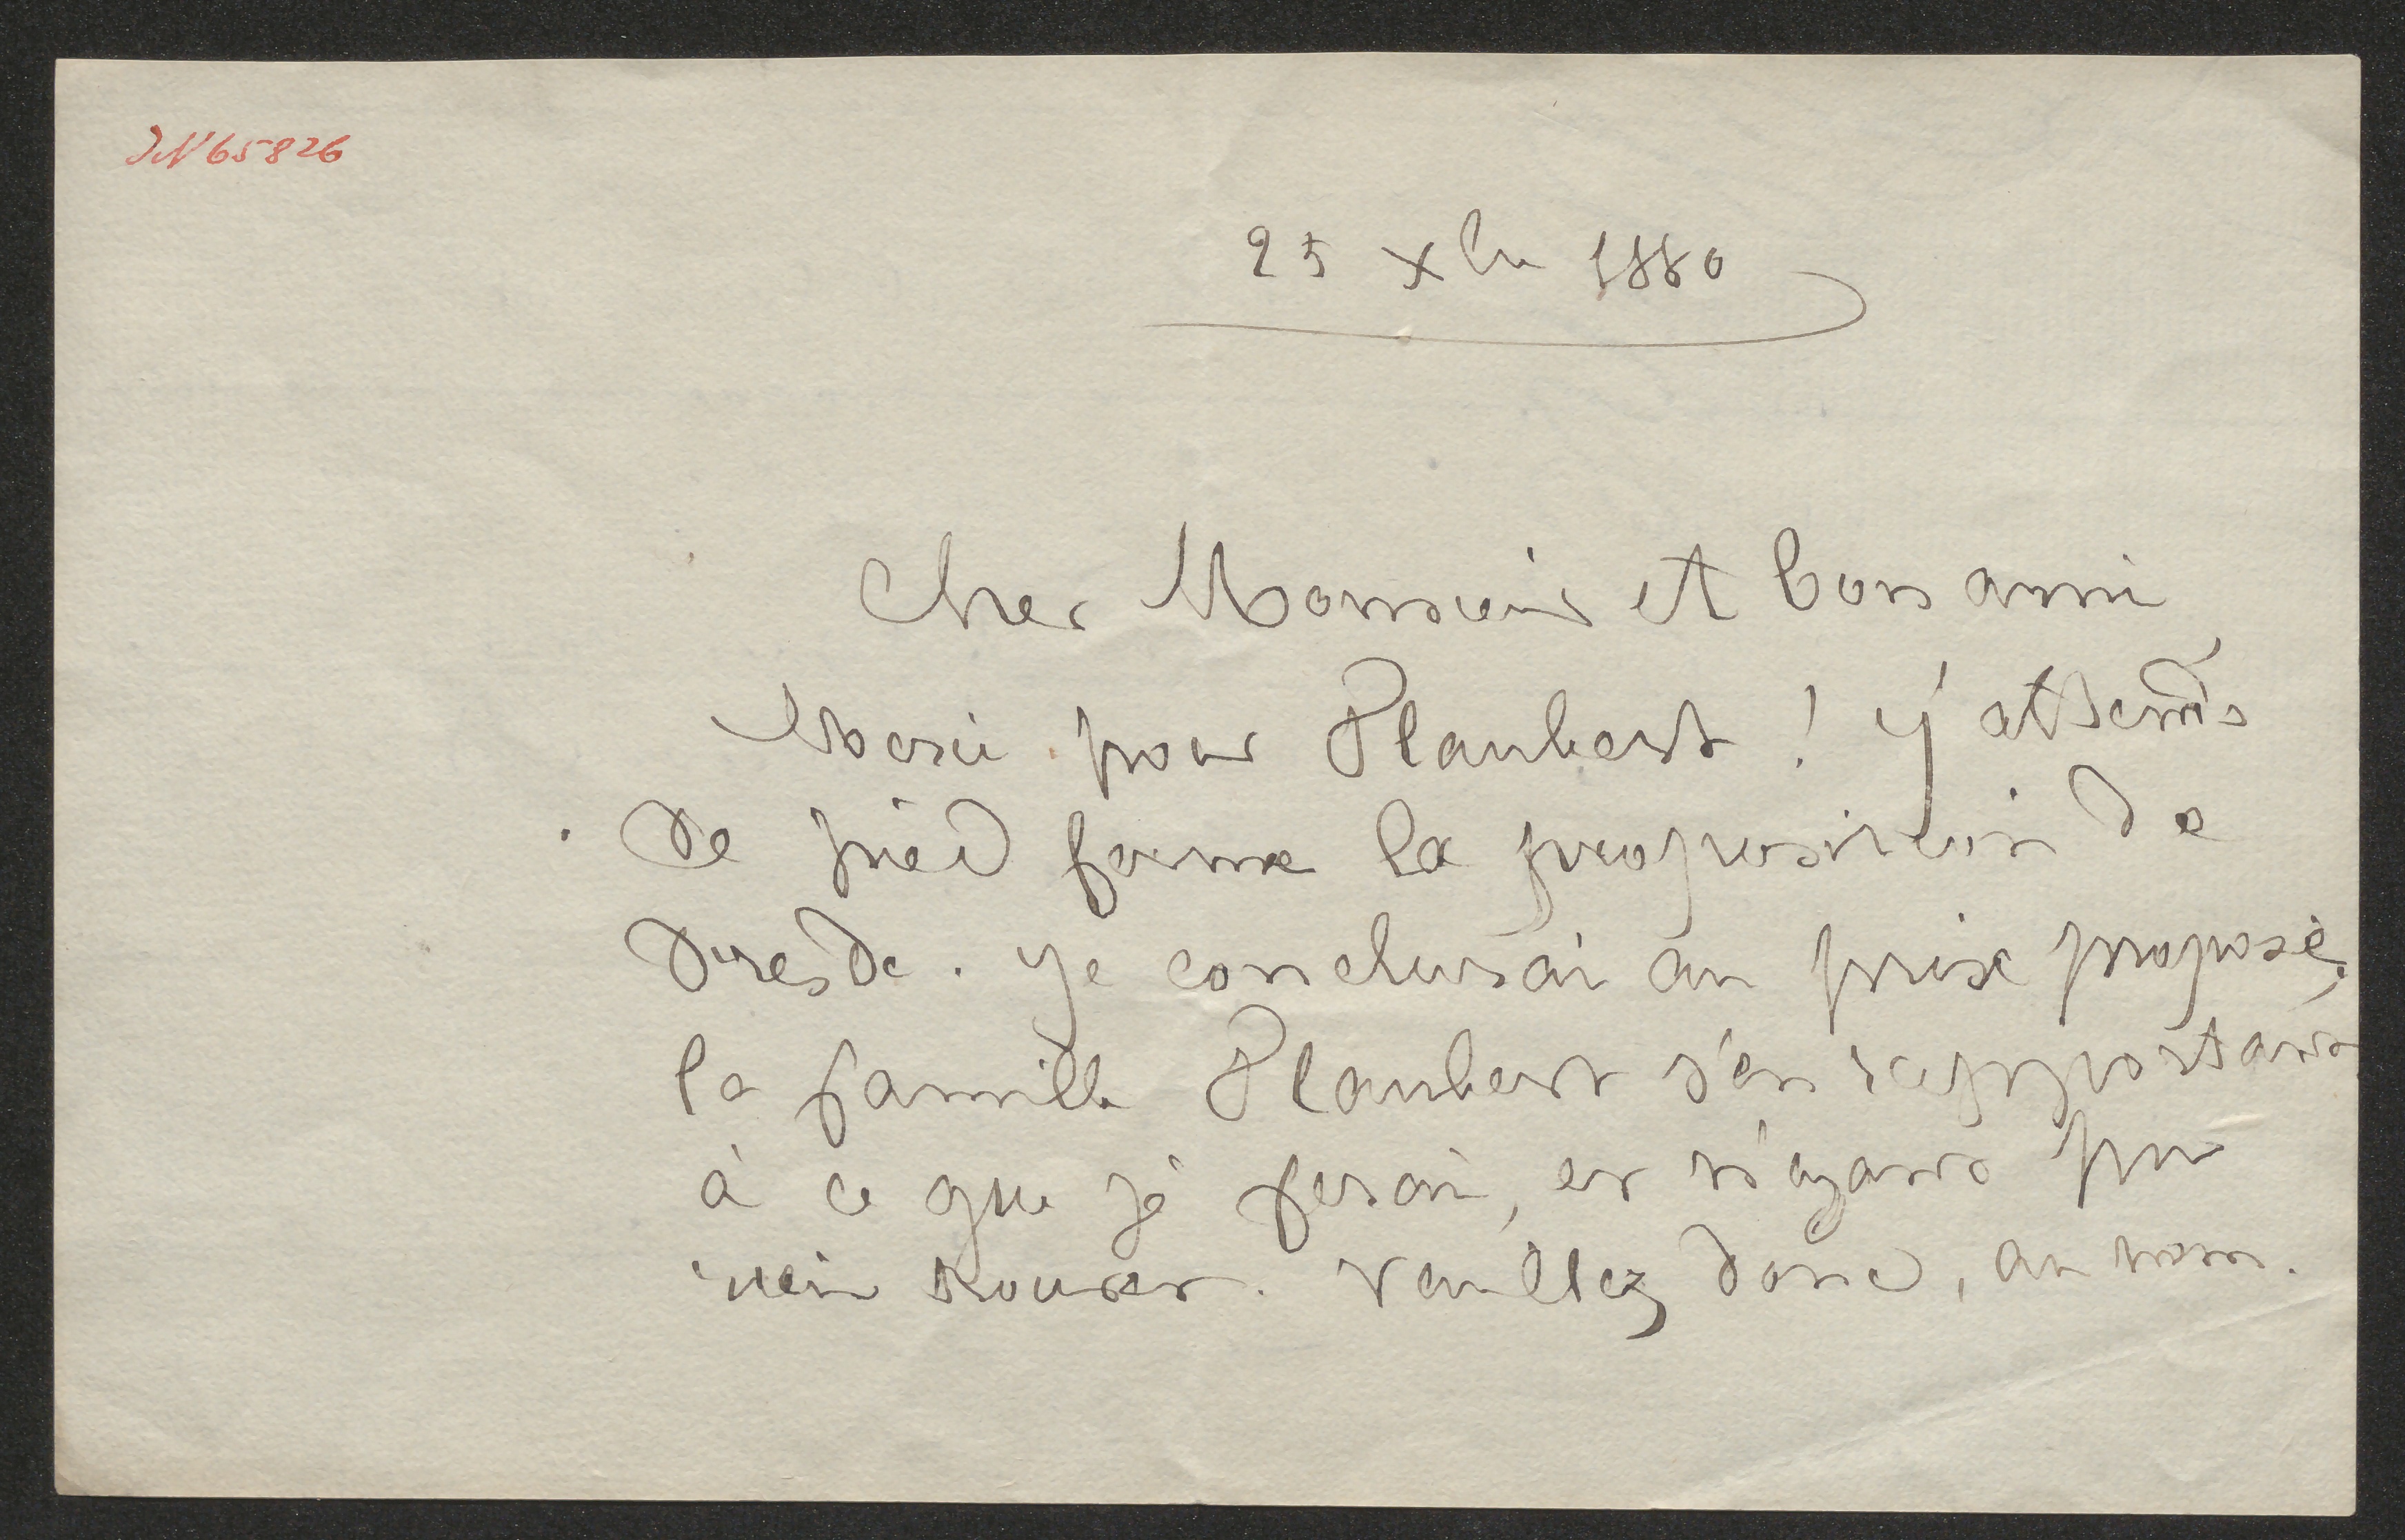 IN 65826
25 xbre 1880
Cher Monsieur et bon ami
Merci pour Flaubert ! J'attends
de pied ferme la proposition de
Dresde. Je conclurai au prix proposé,
la famille Flaubert s'en rapportant
à ce que je ferai, et n'ayant pu
rien trouver. Veuillez donc, au nom.